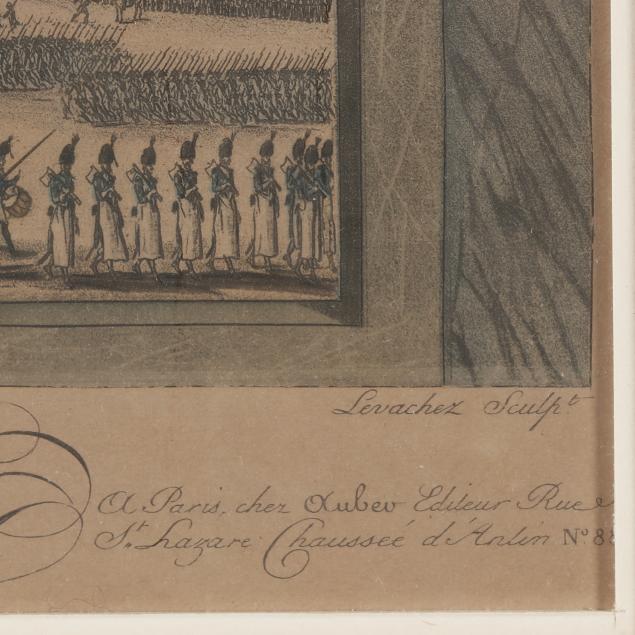 Levachez Sculp.t
A Paris, chez Auber Editeur Rue
St. Lazare Chausseé d'Antin No. 88